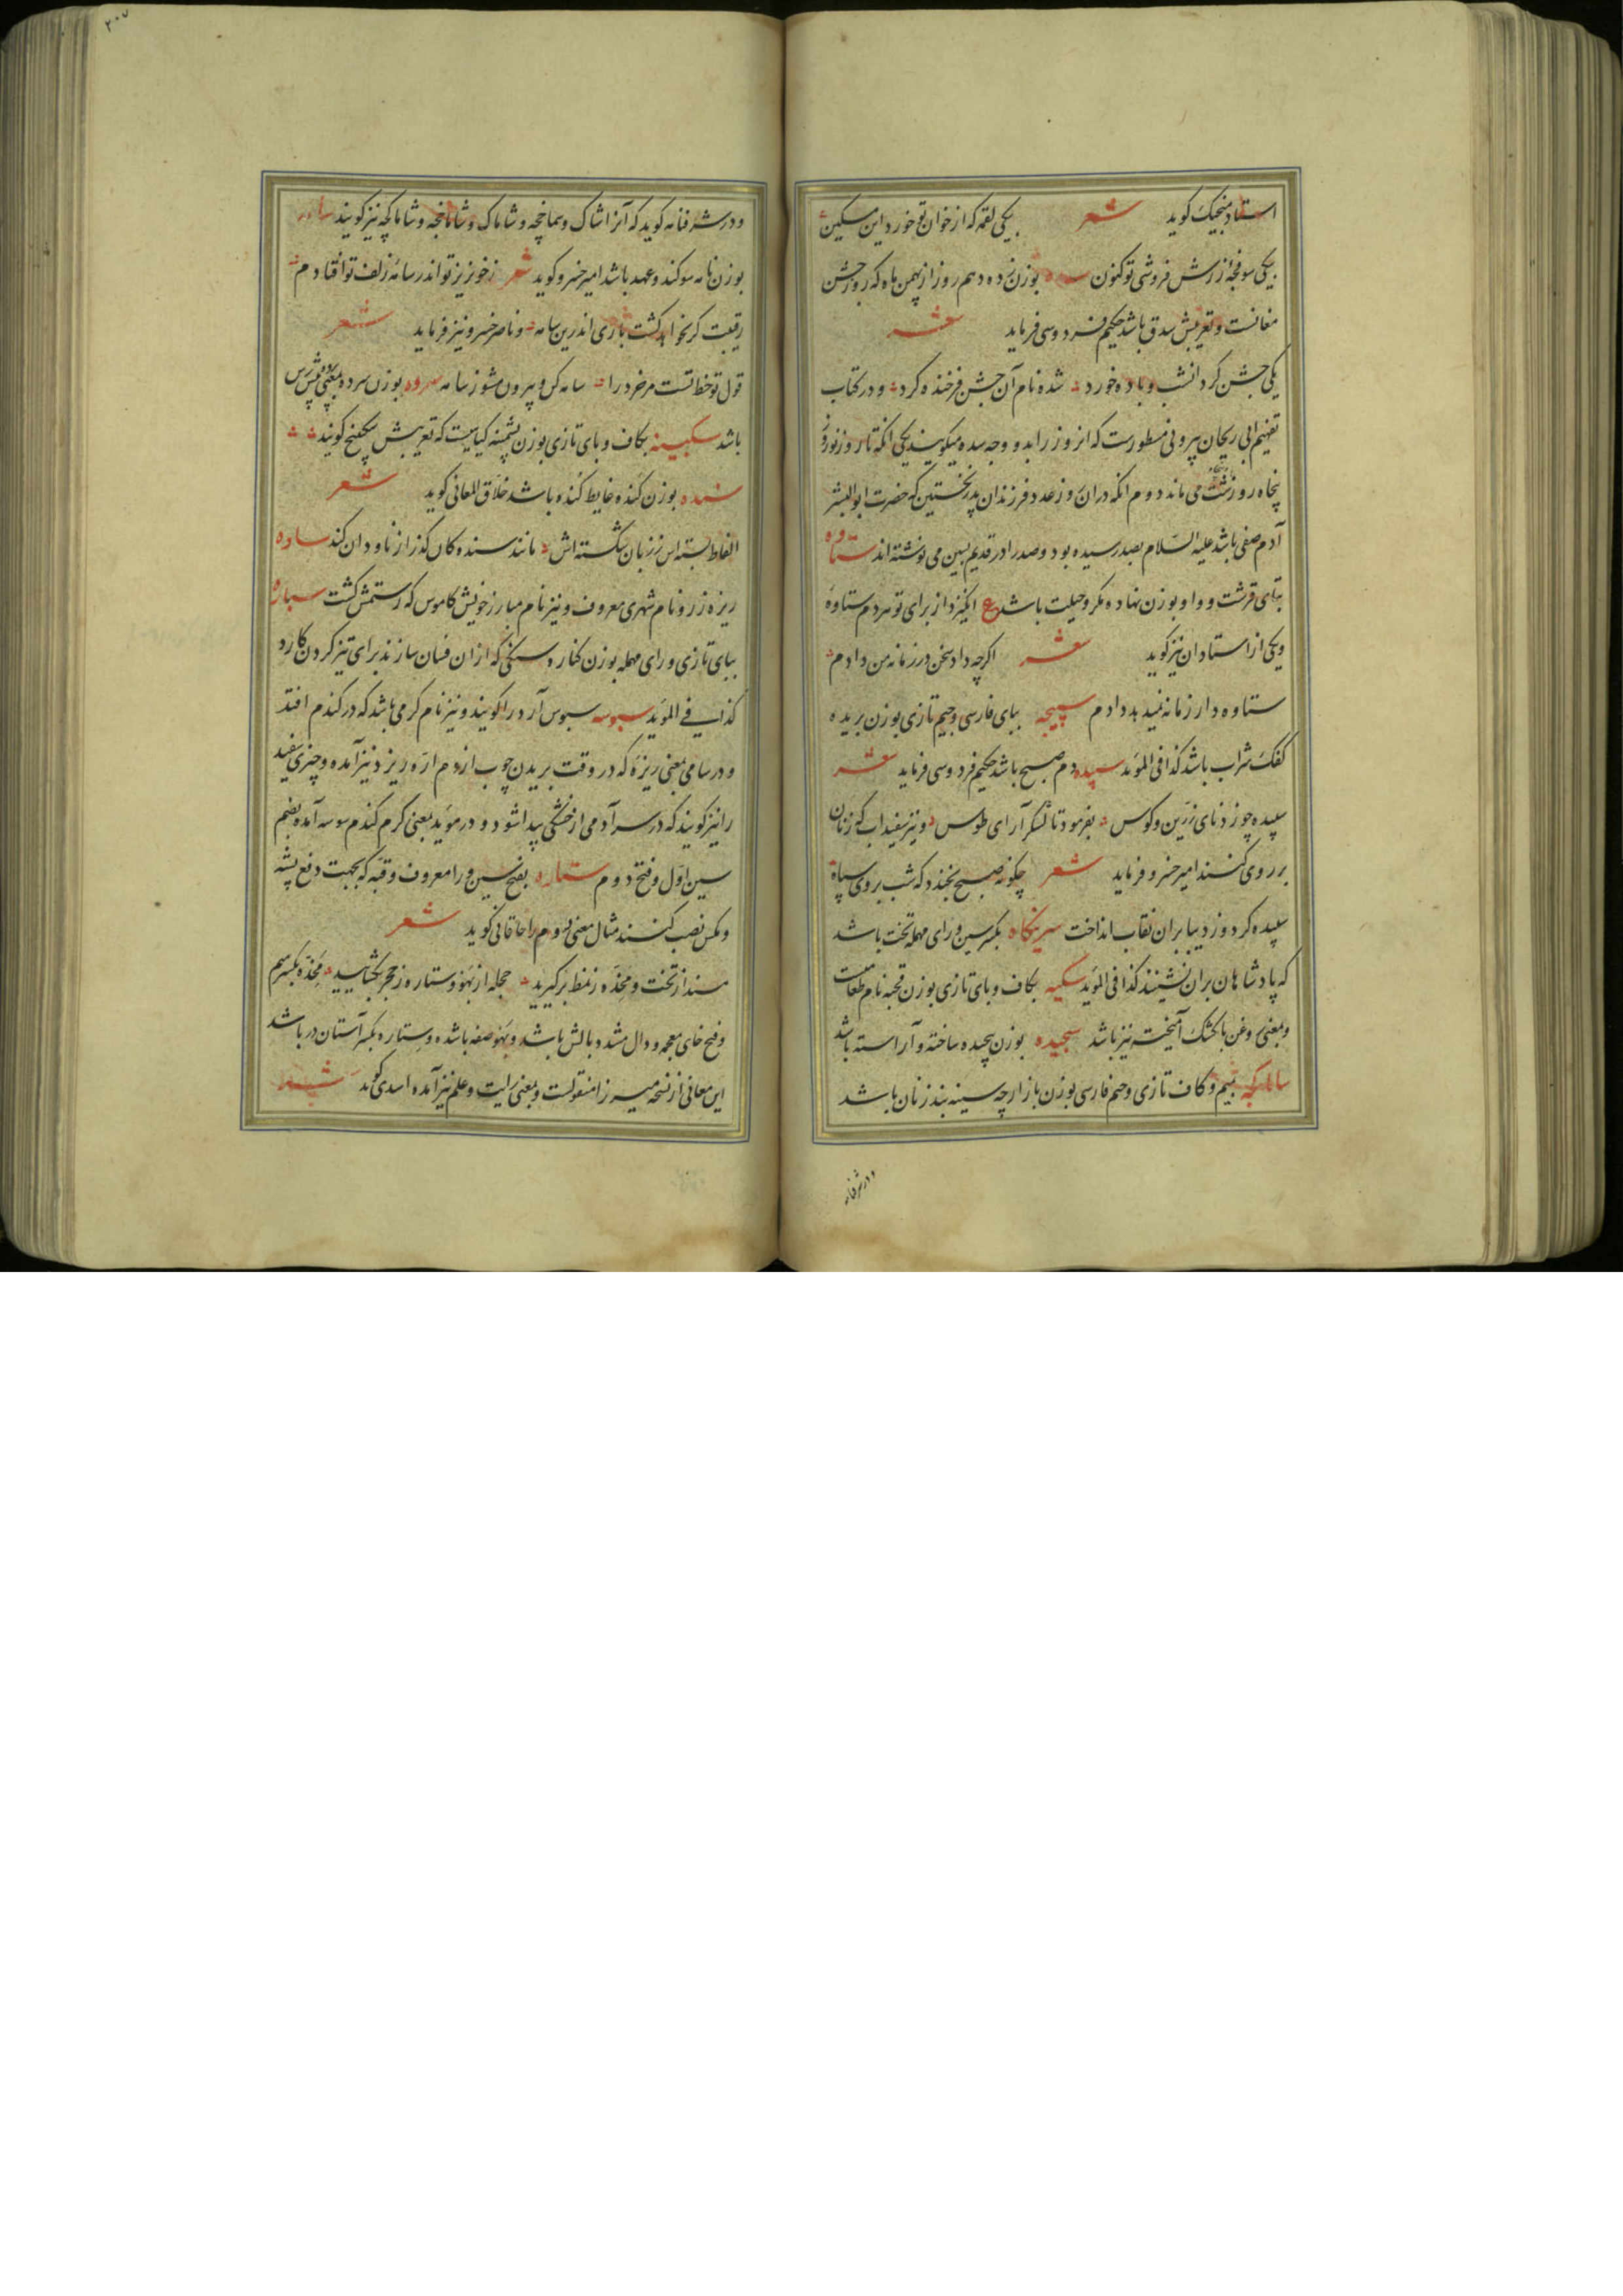 استاد منجیک کوید شعر یکی لقمه که از خوان تو خورد این مسکین
یکی سوفجه ززرش فروشی تو کنون سده بوزن زده دهم روز از بهمن ماه که روز جشن
مغانست و تعریبش سدق باشد حکیم فردوسی فرماید شعر
یکی جشن کرد انشب و باده خورد شده نام آن جشن فرخنده کرد و در کتاب
تفهیم ابی ریحان بیرونی مسطورست که انروز را بدو وجه سده میکویند یکی انکه تا روز نوروز
پنجاه روز می ماند دوم انکه دران روز عدد فرزندان پدر نخستین که حضرت ابوالبشر
آدم صفی باشد علیه السلام بصد رسیده بود و صد را در قدیم بسین می نوشته اند ستاوه
بتای قرشت و واو بوزن نهاده مکر و حیلت باشد ع انکیزد از برای تو هر دم ستاوه
ویکی از استادان نیز کوید شعر اکرچه داد سخن در زمانه من دادم
ستاوه دار زمانه نمیدهد دادم سپیجه ببای فارسی و جیم تازی بوزن بریده
کفک شراب باشد کذا فی المؤید سپیده دم صبح باشد حکیم فردوسی فرماید شعر
سپیده چو زد نای زرین و کوس بفرمود تا لشکر آرای طوس و نیز سفیداب که زنان
بر روی کنند امیر خسرو فرماید شعر چکونه صبح بخندد که شب بروی سیاه
سپیده کرد و ز دیبا بران نقاب انداخت سرینکاه بکسر سین و رای مهمله تخت باشد
که پادشاهان بران نشینند کذا فی المؤید سکبه بکاف و بای تازی بوزن قحبه نام طعامیست
و بمعنی روغن باکشک آمیخته نیز باشد سیجیده بوزن پیچیده ساخته و آراسته باشد
ساماکچه بمیم و کاف تازی و جیم فارسی بوزن بازارچه سینه بند زنان باشد
و در شرفنامه
۲۰۷
و در شرفنامه کوید که آنرا شاماک و سماخچه و شاماک و شاماخچه و شاماکچه نیز کویند سامه
بوزن نامه سوکند و عهد باشد امیر خسرو کوید شعر ز خونریز تو اندر سامه زلف تو افتادم
رقیبت کر نخواهد کشت باری اندرین سامه و ناصر خسرو نیز فرماید شعر
قول تو خطاتست مر خرد را سامه کن و بیرون مشو ز سامه سروه بوزن سرده بمعنی پیش رس
باشد سکبینه بکاف و بای تازی بوزن پشمینه کیاهیست که تعریبش سکبینج کویند
سنده بوزن کنده غایط کنده باشد خلاق المعانی کوید شعر
الفاظ بسته اس ز زبان شکسته اش مانند سنده کان کذر از ناودان کند ساوه
ریزه زر و نام شهری معروف و نیز نام مبارز خویش کاموس که رستمش کشت سباره
ببای تازی و رای مهمله بوزن کناره سنکی که ازان فسان سازند برای تیز کردن کارد
کذا فی المؤید سبوسه سبوس آرد را کویند و نیز نام کرمی باشد که در کندم افتد
و در سامی بمعنی ریزه که در وقت بریدن چوب از دم اره ریزد نیز آمده و چیزی سفید
را نیز کویند که در سر آدمی از خشکی پیدا شود و در موید بمعنی کرم کندم سوسه آمده بضم
سین اول و فتح دوم ستاره بفتح سین ورا معروف و قبه که بجهت دفع پشه
و مکس نصب کنند مثال معنی دوم را خاقانی کوید شعر
مسند از تخت و مخده ز نمط برکیرید حجله از بهو و ستاره ز حجر بکشایید مخده بکسر میم
و فتح خای معجمه و دال مشدد بالش باشد و بهو صفه باشد و ستاره بکسر آستان در باشد
این معانی از نسخه میرزا منقولست و بمعنی رایت و علم نیز آمده اسدی کوید شعر